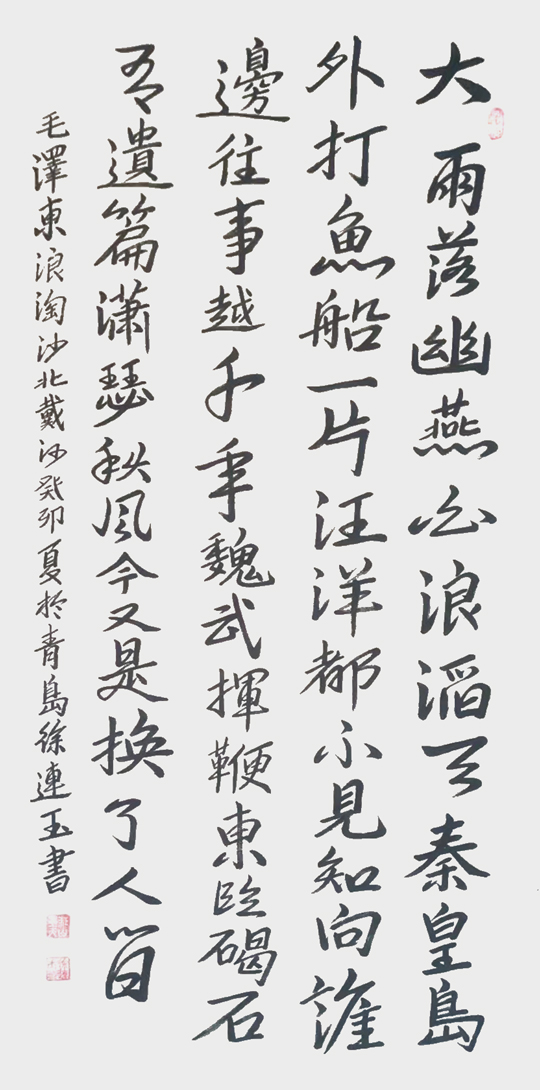 大雨落幽燕白浪滔天秦皇島
外打魚船一片汪洋都不見知向誰
邊往事越千年魏武揮鞭東臨碣石
有遺篇瀟瑟秋風今又是換了人間
毛澤東浪淘沙北戴河癸卯夏於青島徐連玉書